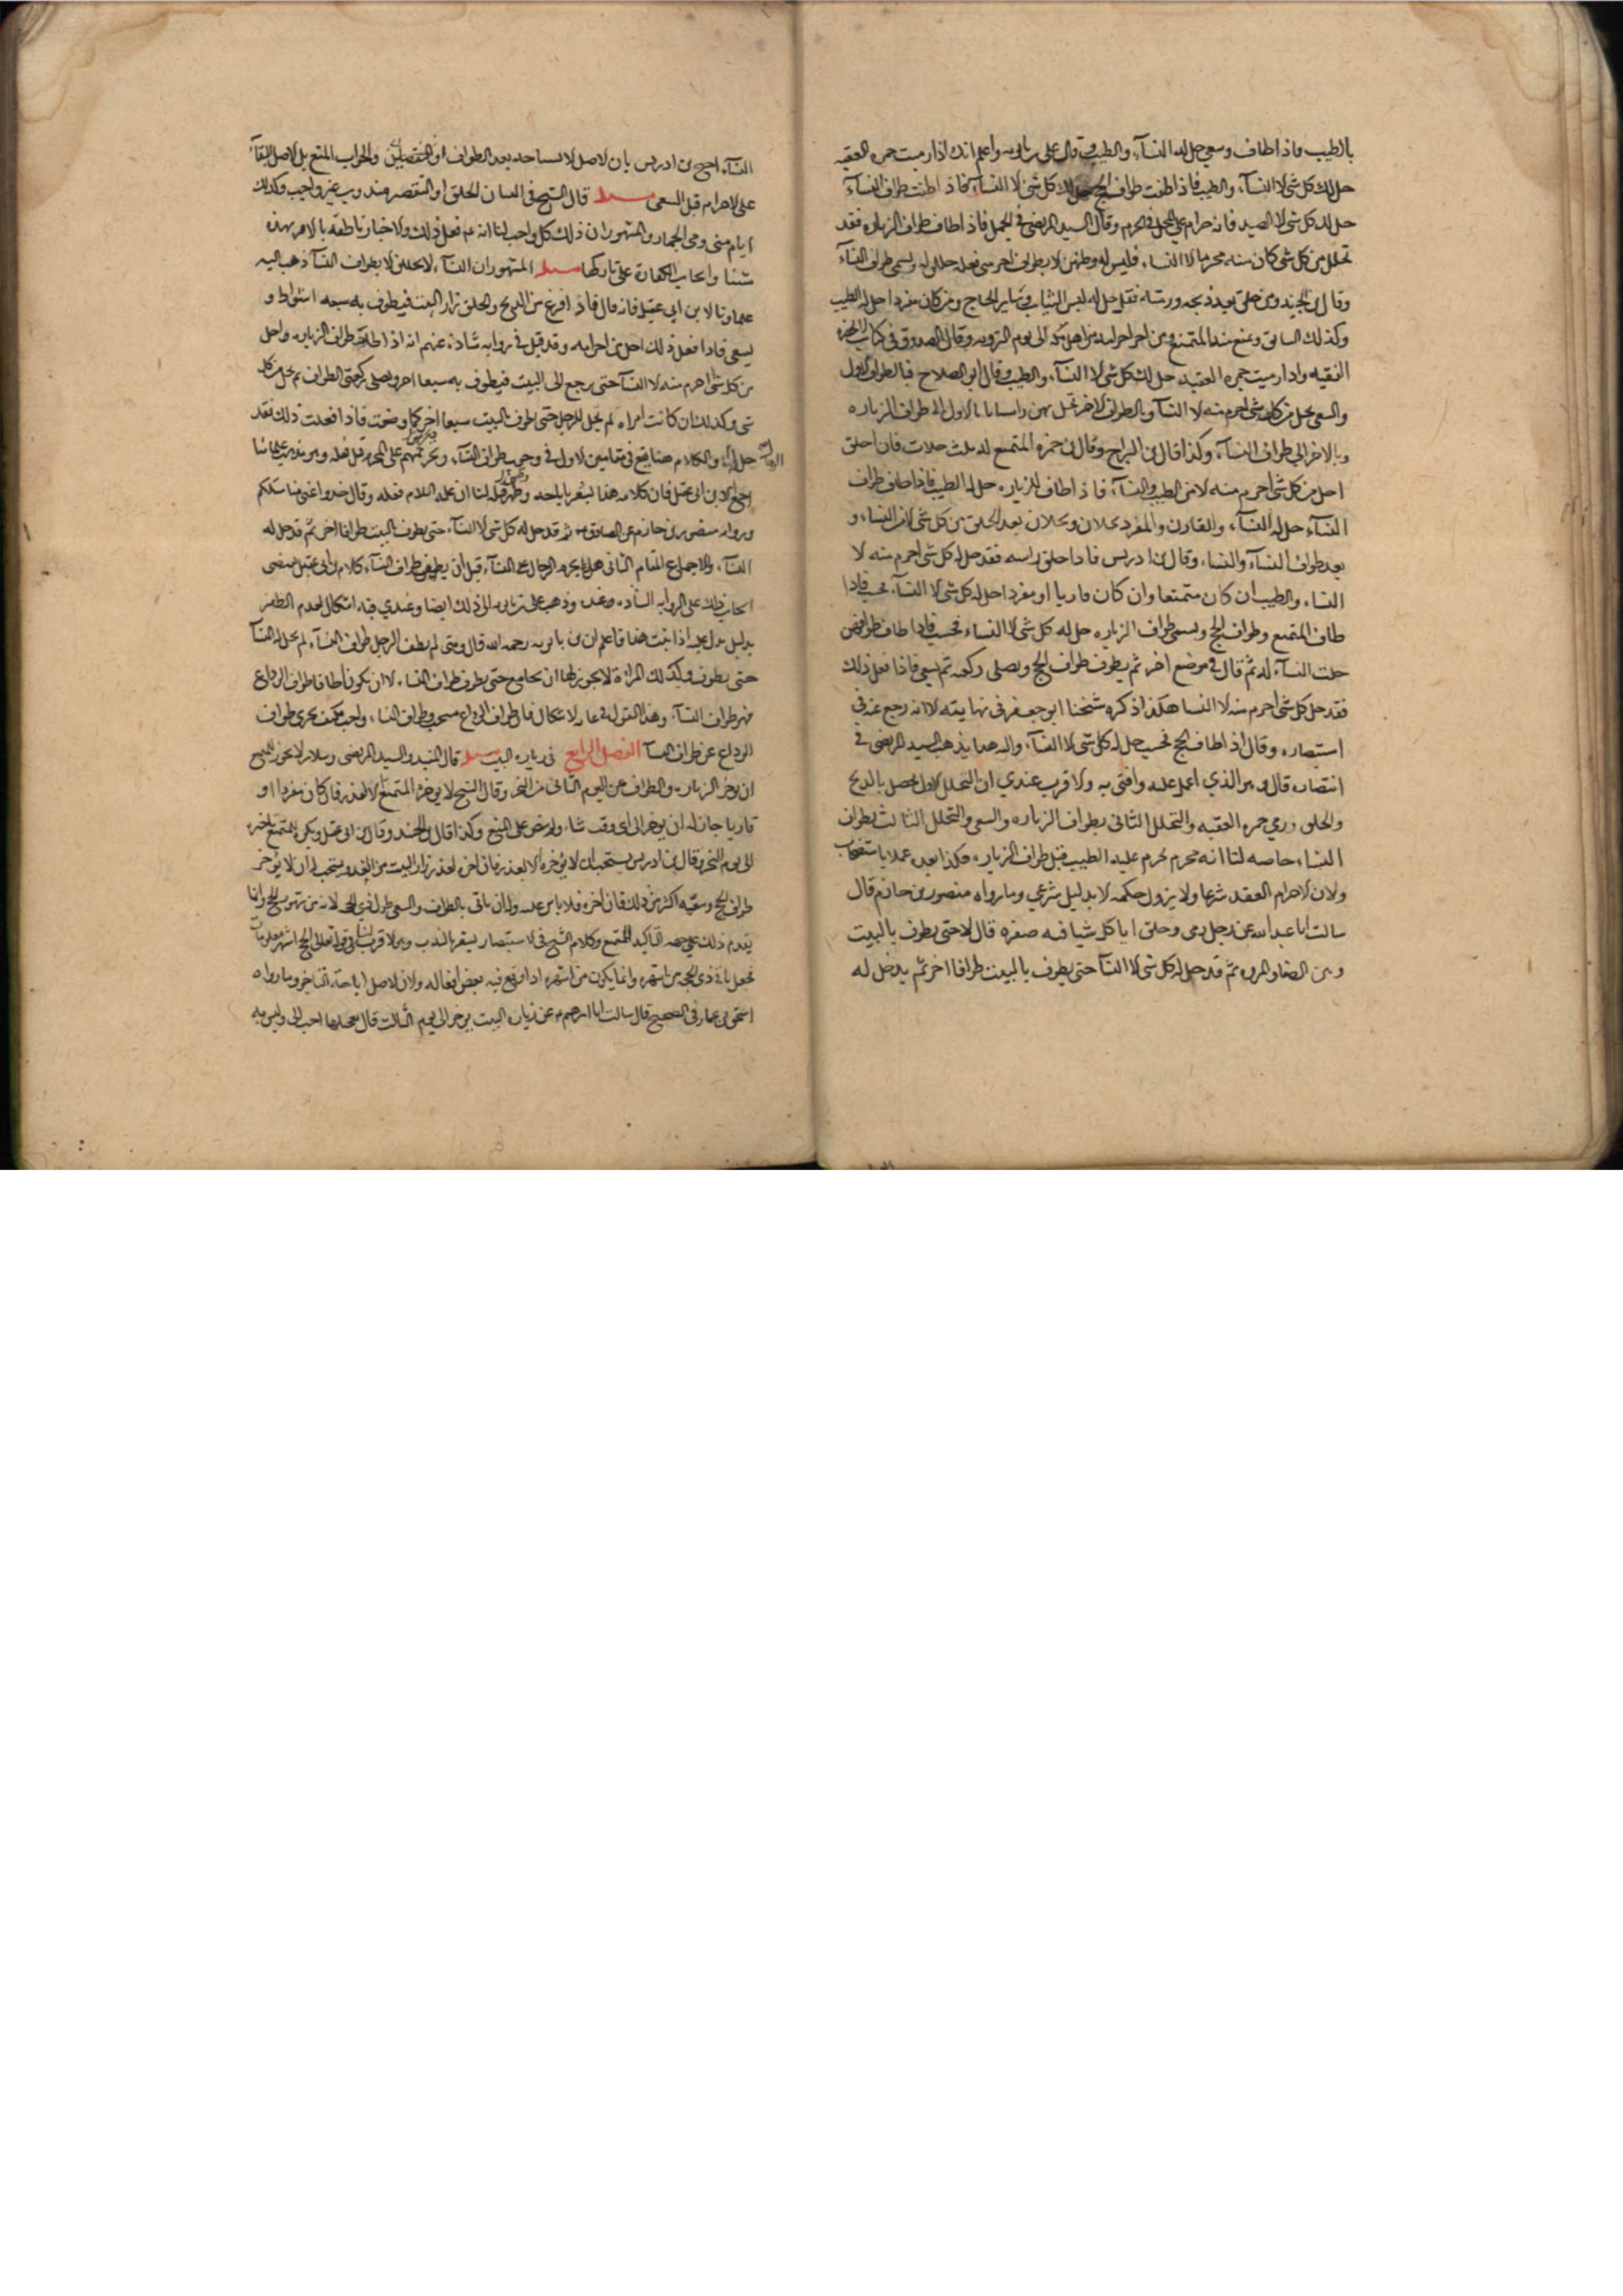 بالطيب فاذا طاف وسعى حل له النسآء والطيب وقال على بن بابويه واعلم انك اذا رميت جمره العقبه
حل لك كل شى الا النسآء والطيب فاذا طفت طواف الحج حل لك كل شى الا النسآء فاذا طفت طواف النسآء
حل لك كل شى الا الصيد فانه حرام على المحل فى الحرم وقال السيد المرتضى فى الجمل فاذا طاف طواف الزياره فقد
تحلل من كل شى كان منه محرما الا النسا فليس له وطئهن الا بطواف اخر متى فعله حللن له ويسمى طواف النسآء
وقال بن الجنيد ومن حلق بعد ذبحه ورمى فقد حل له لبس الثياب وساير الحاج ومن كان مفردا حل له الطيب
وكذلك السايق ويمنع منه المتمتع ومن احرامه من اهل مكه الى يوم الترويه وقال الصدوق فى كتاب من لا يحضره
الفقيه واذا رميت جمره العقبه حل لك كل شى الا النسآء والطيب وقال ابو الصلاح فبالطواف الاول
والسعى يحل من كل شى احرم منه الا النسآ وبالطواف الاخر تحل بهن واشار بالاول الى طواف الزياره
وبالاخر الى طواف النسآء وكذا قال بن البراج وقال بن حمزه المتمتع له ثلث حلات فان حلق
احل من كل شى احرم منه الا من الطيب والنسآء فاذا طاف للزياره حل له الطيب فاذا طاف طواف
النسآء حل له النسآء والقارن والمفرد يحلان بعد الحلق من كل شى الا من النساء و
بعد طواف النسآء والنساء وقال بن ادريس فاذا حلق راسه فقد حل له كل شى احرم منه الا
النساء والطيب ان كان متمتعا وان كان قاريا او مفردا حل له كل شى الا النسآء فحسب فاذا
طاف المتمتع وطواف الحج ويسمى طواف الزياره حل له كل شى الا النساء فحسب فاذا طاف طوافهن
حلت النسآء له ثم قال فى موضع اخر ثم يطوف طواف الحج ويصلى ركعتيه ثم يسعى فاذا فعل ذلك
فقد حل كل شى احرم منه الا النسا هكذا ذكره شيخنا ابو جعفر فى نهايته الا انه رجع عنه فى
استبصاره وقال اذا طاف للحج فحسب حل له كل شى الا النسآء والى هذا يذهب السيد المرتضى فى
انتصاره قال وهو الذي اعمل عليه وافتى به والاقرب عندي ان التحلل الاول يحصل بالذبح
والحلق ورمى جمره العقبه والتحلل الثانى بطواف الزياره والسعى والتحلل الثالث بطواف
النساء خاصه لنا انه محرم فيحرم عليه الطيب قبل طواف الزياره فكذا بعده عملا باستصحاب
ولان الاحرام انعقد شرعا ولا يزول حكمه الا بدليل شرعى وما رواه منصور بن حازم قال
سالت ابا عبد الله عن رجل رمى وحلق اياكل شيا فيه صفره قال لا حتى يطوف بالبيت
وبين الصفا والمروه ثم قد حل له كل شى الا النسآ حتى يطوف بالبيت طوافا اخر ثم يدخل له
النسآء احتج بن ادريس بان الاصل الاباحه بعد الطواف او التقصير والجواب المنع بل الاصل البقاء
على الاحرام قبل السعى مسله قال الشيخ فى التبيان الحلق او التقصير مندوب غير واجب وكذلك
ايام منى ورمى الجمار والمشهور ان ذلك كل واجب لنا انه عم فعل ذلك والاخبار ناطقه بالامر بهذه
شتنا وايجاب الكفارة على تاركها مسله المشهور ان النسآء لا يحللن الا بطواف النسآ ذهب اليه
علماونا الا بن ابى عقيل فانه قال فاذا فرغ من الذبح والحلق زار البيت فيطوف به سبعه اشواط و
يسعى فاذا فعل ذلك احل من احرامه وقد قيل فى روايه شاذه عنهم انه اذا طاف طواف الزياره واحل
من كل شى احرم منه الا النسآ حتى يرجع الى البيت فيطوف به سبعا اخر ويصلى ركعتى الطواف ثم يحل من كل
شى وكذلك ان كانت امراه لم تحل للرجل حتى تطوف بالبيت سبعا اخر كما وصفت فاذا فعلت ذلك فقد
حل لها والكلام هنا يقع فى مقامين الاول فى وجوب طواف النسآء وتحريمهم على المحرم قبل فعله وهو مذهب علمائنا
اجمع الا بن ابى عقيل فان كلامه هذا يشعر باباحته قبله لنا انه عليه السلام فعله وقال خذوا عنى مناسككم
ورواه منصور بن حازم عن الصادق ثم قد حل له كل شى الا النسآء حتى يطوف بالبيت طوافا اخر ثم قد حل له
النسآء والاجماع المقام الثانى هل يحرم الرجال على النسآء قبل ان يطفن طواف النسآء كلام بن ابى عقيل يقتضى
ايجاب ذلك على الروايه الشاذه وذهب على بن بابويه الى ذلك ايضا وعندي فيه اشكال لعدم الظفر
بدليل يدل عليه اذا ثبت هذا فاعلم ان بن بابويه رحمه الله قال ومتى لم يطف الرجل طواف النسآء لم يحل له النسآء
حتى يطوف وكذلك المراة لا يجوز لها ان تجامع حتى تطوف طواف النساء الا ان يكونا طافا طواف الوداع
فهو طواف النسآء وهذا القول فى غايه الاشكال فان طواف الوداع مستحب وطواف النساء واجب فكيف يجزى طواف
الوداع عن طواف النسآ الفصل الرابع فى زياره البيت مسله قال المفيد والسيد المرتضى وسلار لا يجوز للمتمتع
ان يوخر الزياره والطواف عن اليوم الثانى من النحر وقال الشيخ لا يوخره المتمتع الا لعذر فان كان مفردا او
قاريا جاز له ان يوخر الى اى وقت شاء وكذا قال بن الجنيد وقال بن ابى عقيل ويكره للمتمتع تاخيره
الى يوم النحر وقال بن ادريس يستحب ان لا يؤخره الا لعذر فان اخره لعذر زار البيت من الغد ويستحب له ان لا يؤخر
طواف الحج وسعيه اكثر من ذلك فان اخره فلا باس عليه وله ان ياتى بالطواف والسعى طول ذى الحجه لانه من شهور الحج وانما
يقدم ذلك على جهه التاكيد للمتمتع وكلام الشيخ فى الاستبصار يشعر بالندب وهو الاقرب لنا قوله تعالى الحج اشهر معلومات
فجعل باقى ذى الحجه من اشهره وانما يكون من اشهره اذا وقع فيه بعض افعاله ولان الاصل اباحة التاخر وما رواه
اسحق بن عمار فى الصحيح قال سالت ابا ابرهيم عن زياره البيت يوخر الى يوم الثالث قال تعجيلها احب الى وليس به